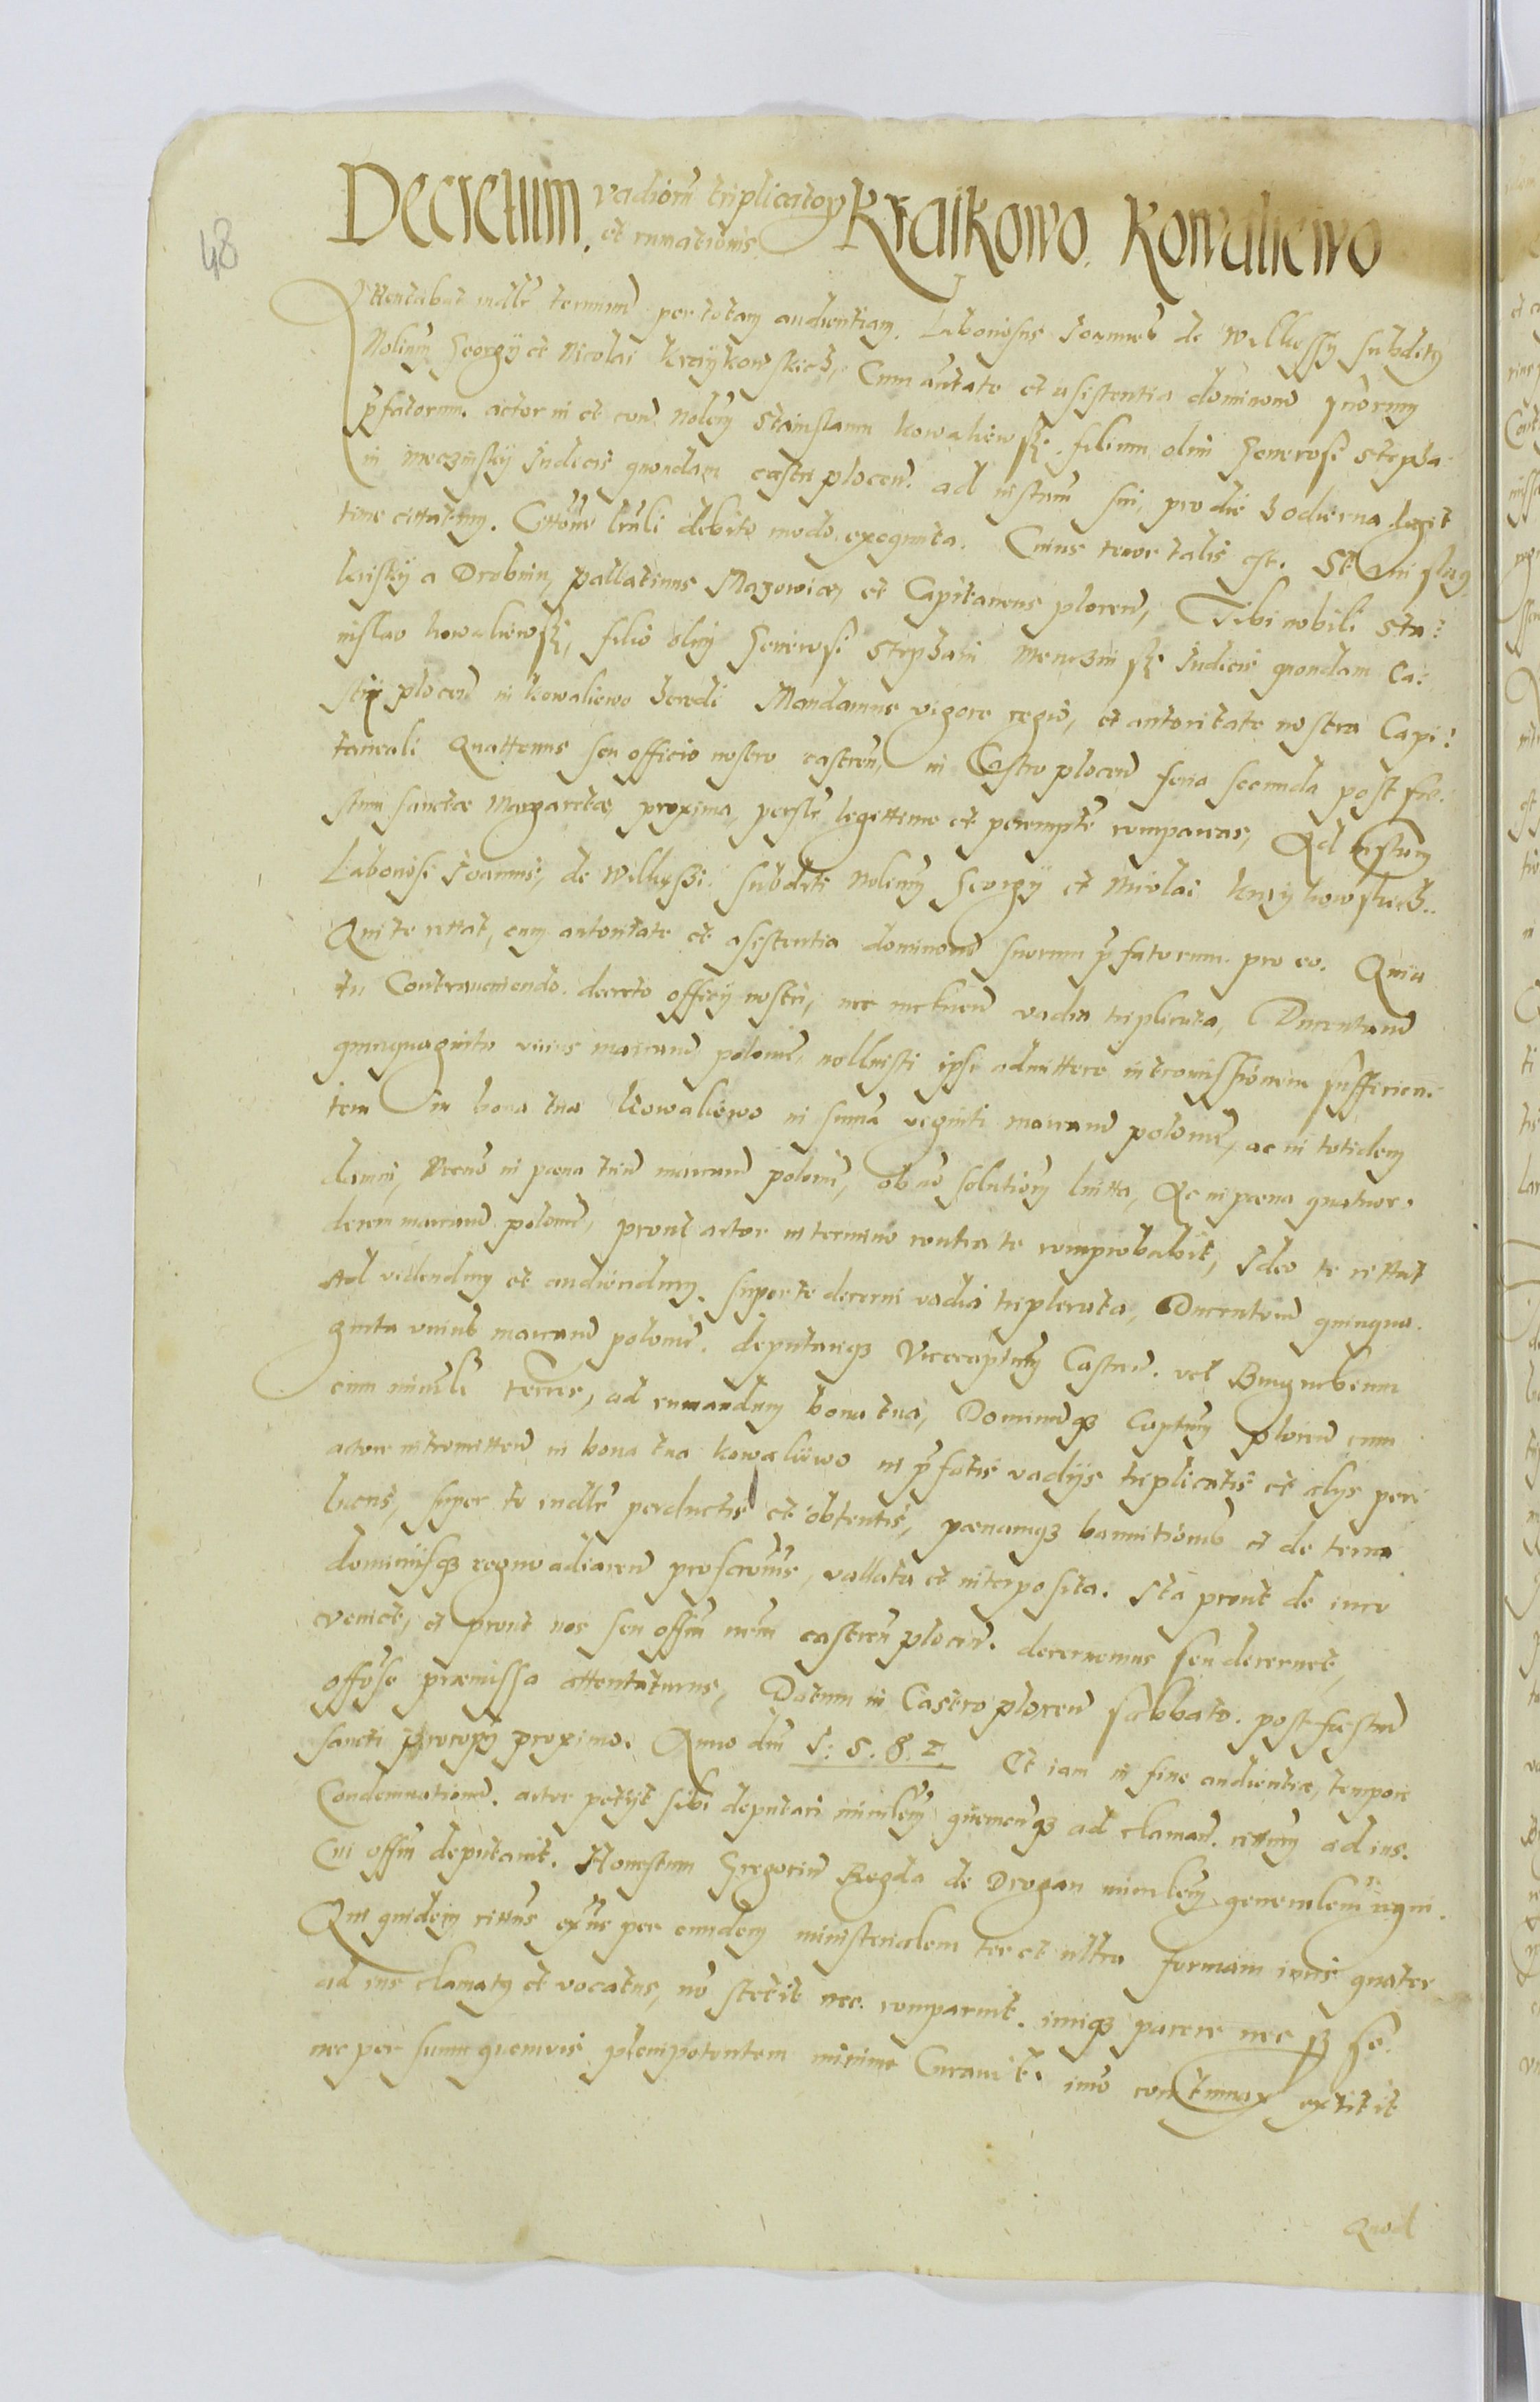 48
Decretum. vadiorū triplicatoꝝ et rumationis Kraikowo. Kowaliewo
Attentabat iudlr̃ terminū per totam audientiam. Laboriosus Joannes de Wilkessy subditꝰ
Nolium Georgÿ et Nicolai Kraÿkowskich, Cum aūtate et assistentia dominorū suorum
p̄fatorum. actor in et conᵃ Nolem Stanislaum Kowaliewsky. filium olim Generosi Stepha
ni Meczinskÿ Judicis quondam castri plocen̄. ad instan̄ sui, pro die hodierna legit
time cittatum. Cittōne l̄rali debito modo exequuta. Cuius tenor talis est. Stanislaꝰ
Kriskÿ a Drobnin, pallatinus Mazowiæ, et Capitaneus plocen̄, Tibi nobili Sta:
nislao Kowaliewsky, filio olim Generosi Stephani Menczinsky Judicis quondam Ca:
strÿ plocen̄ in Kowaliewo heredi Mandamus vigore regio, et autoritate nostra Capi:
taneali Quattenus seu officio nostro castren̄, in Castro plocen̄ feria secunda post fe:
stum sanctæ Margaretæ, proxima, per̄slr̃ legittime et perempte compareas, Ad instan̄
Laboriosi Joannis, de Wilkyssi. subditi Nolium Georgÿ et Nicolai Kraÿkowskich..
Qui te cittat, cum autoritate et assistentia dominorū suorum p̄fatorum. pro eo. Quia
tu Contraveniendo. decreto officÿ nostri, nec metuen̄ vadia triplicata, Ducentarū
quinquaginta unius marcarū polonic̄, nolluisti ipsi admittere intromissionem sufficien:
tem in bona tua Kowaliewo in suma viginti marcarū polonic̄, ac in totidem
damni, Necnō in pœna triū marcarū polonic̄, ob nō solutionē luitta, Ac in pœna quatuor.
decem marcarū polonic̄, prout actor in termino contra te comprobabit, Ideo te cittat
Ad videndum et audiendum. super te decerni vadia triplicata, Ducentarū quinqua.
ginta unius marcarū polonic̄. deputariqꝫ Vicecapitm̄ Castren̄. vel Burgrabium
cum miñli terrs, ad rumandum bona tua, Dominūqꝫ Capitm̄ plocen̄ cum
actore intromitten̄ in bona tua Kowaliewo in p̄fatis vadÿs triplicatis et alÿs peri
lucris, super te iudlr̃ perductis et obtentis, pœnamqꝫ bannitionis et de terra
dominiisqꝫ regno adiacen̄ proscrōnis, vallata et interposita. Ita prout de iure
eveniet, et prout nos seu offm̄ nr̄m castren̄ plocen̄. decernemus seu decernet,
offose præmissa attentaturus, Datum in Castro plocen̄ sabbato. post festum
sancti Procopÿ proximo. Anno dni 1: 5. 8. 2. Et iam in fine audientiæ, tempore
Condemnationū. actor petÿt sibi deputari minrlem quemcunqꝫ ad claman̄. cittum ad ius.
Cui offm̄ deputavit. Honestum Gregoriū Rogda de Drogan minrlem generalem regni.
Qui quidem cittꝰ exns per eundem ministerialem ter et ultra formam iuris quater
ad ius clamatꝰ et vocatus, nō stetit nec comparuit. iuriqꝫ parere nec ꝑ se.
nec per suum quemvis plenipotentem minime Curavit. imo contumax extitit
Quod